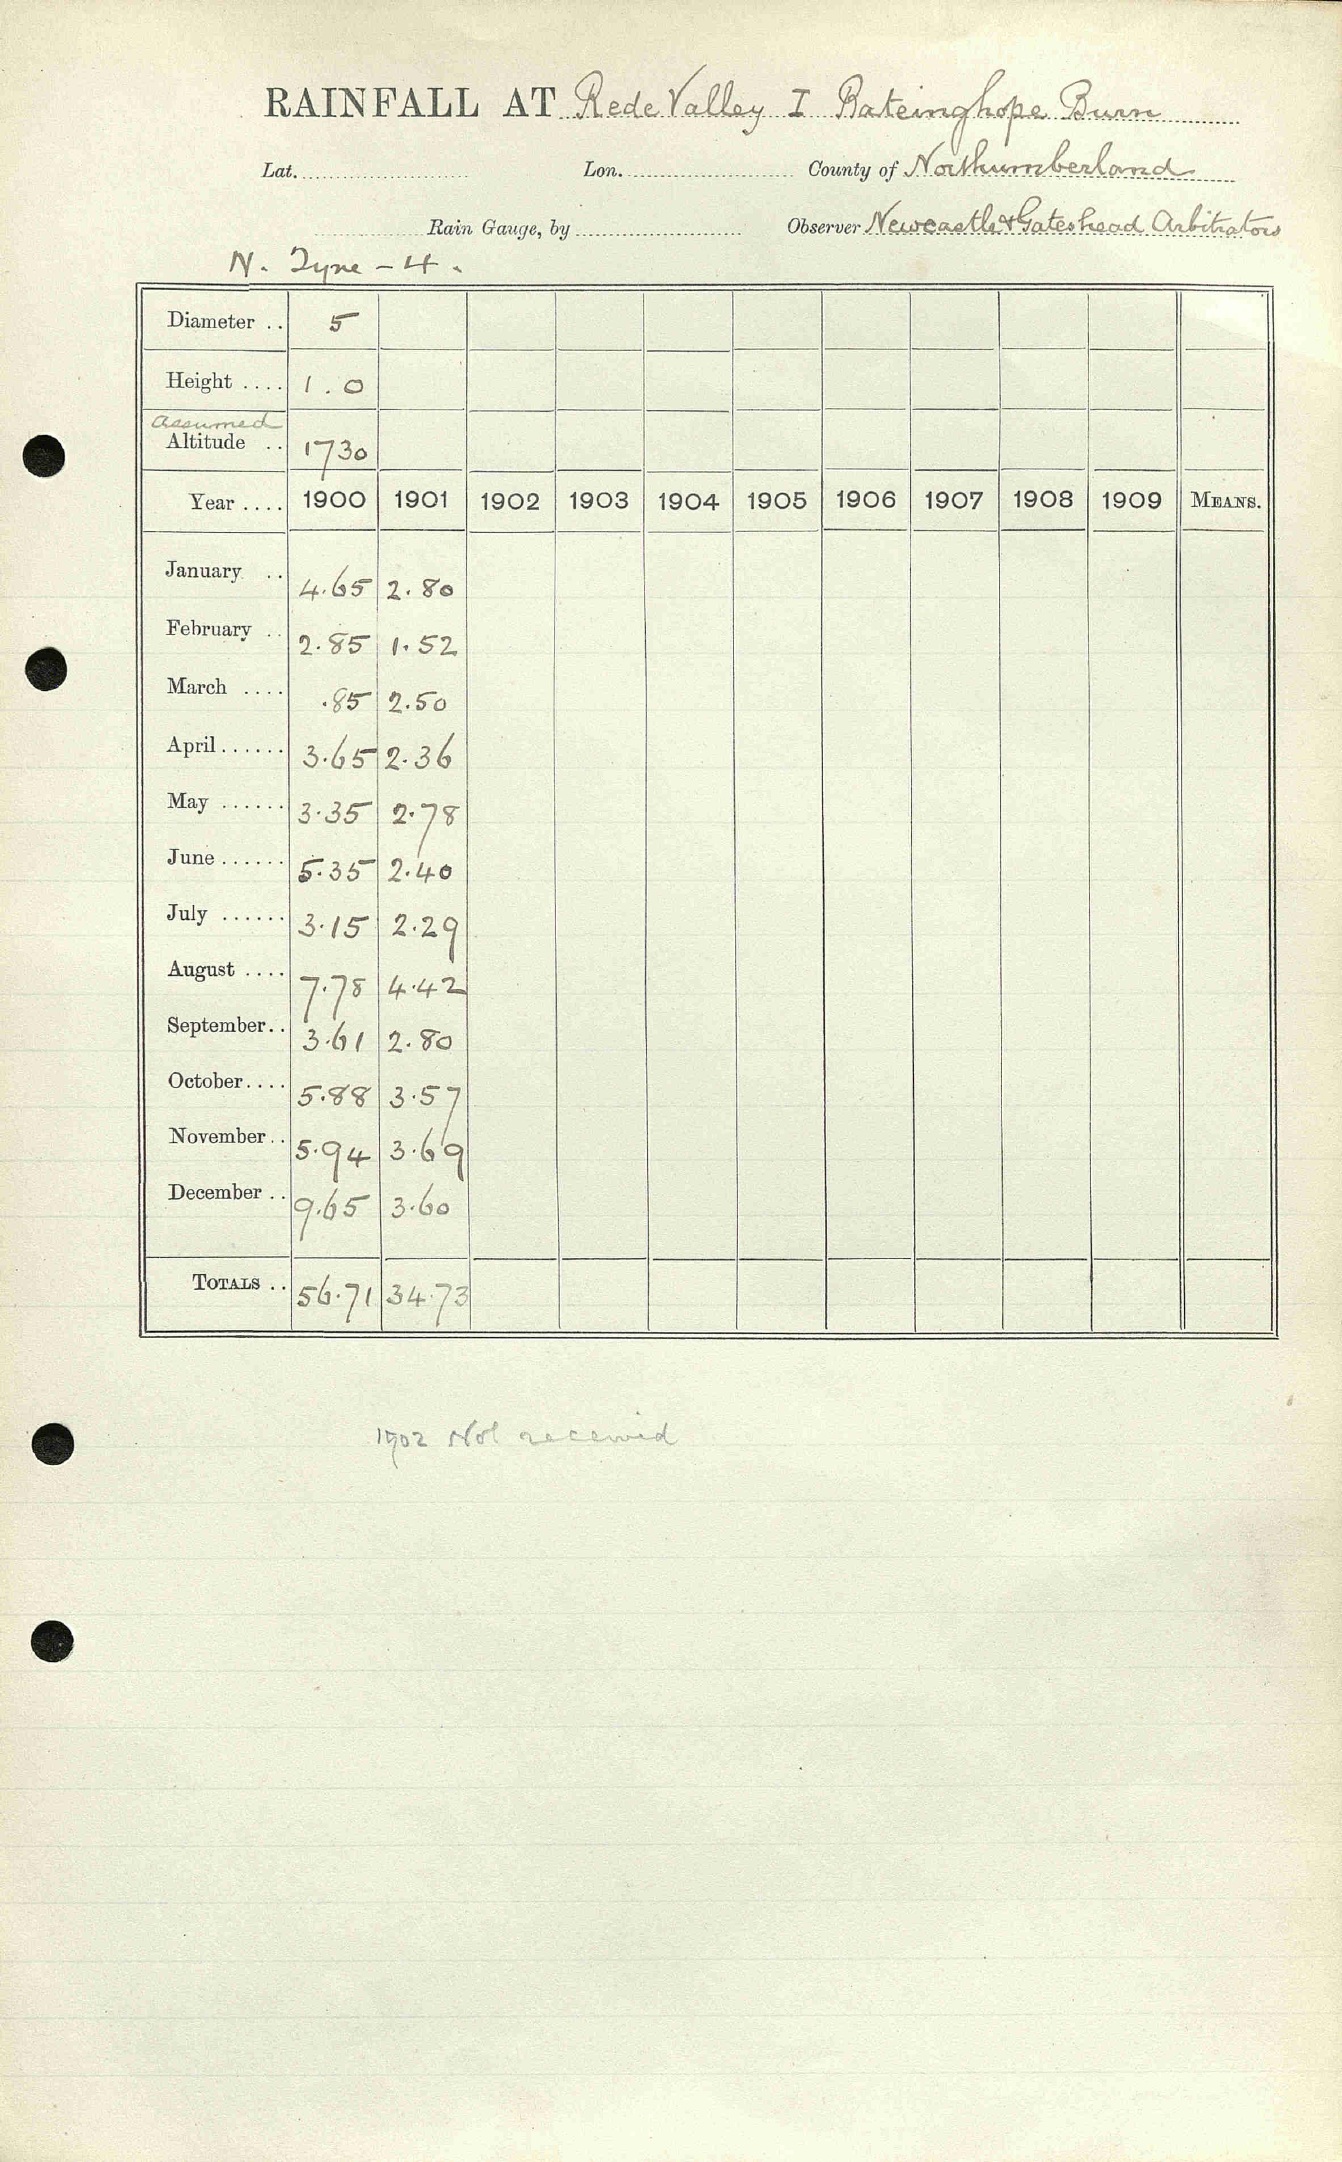 RAINFALL AT Rede Valley I Bateinghope Burn
Lat. Lon. County of Northumberland
Rain Gauge, by Observer Newcastle & Gateshead Arbitrators
N. Tyne - 4.
Diameter .. 5
Height .... 1.0
assumed
Altitude .. 1730
Year .... 1900 1901 1902 1903 1904 1905 1906 1907 1908 1909 MEANS.
January .. 4.65 2.80
February .. 2.85 1.52
March .... .85 2.50
April ...... 3.65 2.36
May ...... 3.35 2.78
June ...... 5.35 2.40
July ...... 3.15 2.29
August .... 7.78 4.42
September .. 3.61 2.80
October .... 5.88 3.57
November .. 5.94 3.69
December .. 9.65 3.60
TOTALS .. 56.71 34.73
1902 Not received